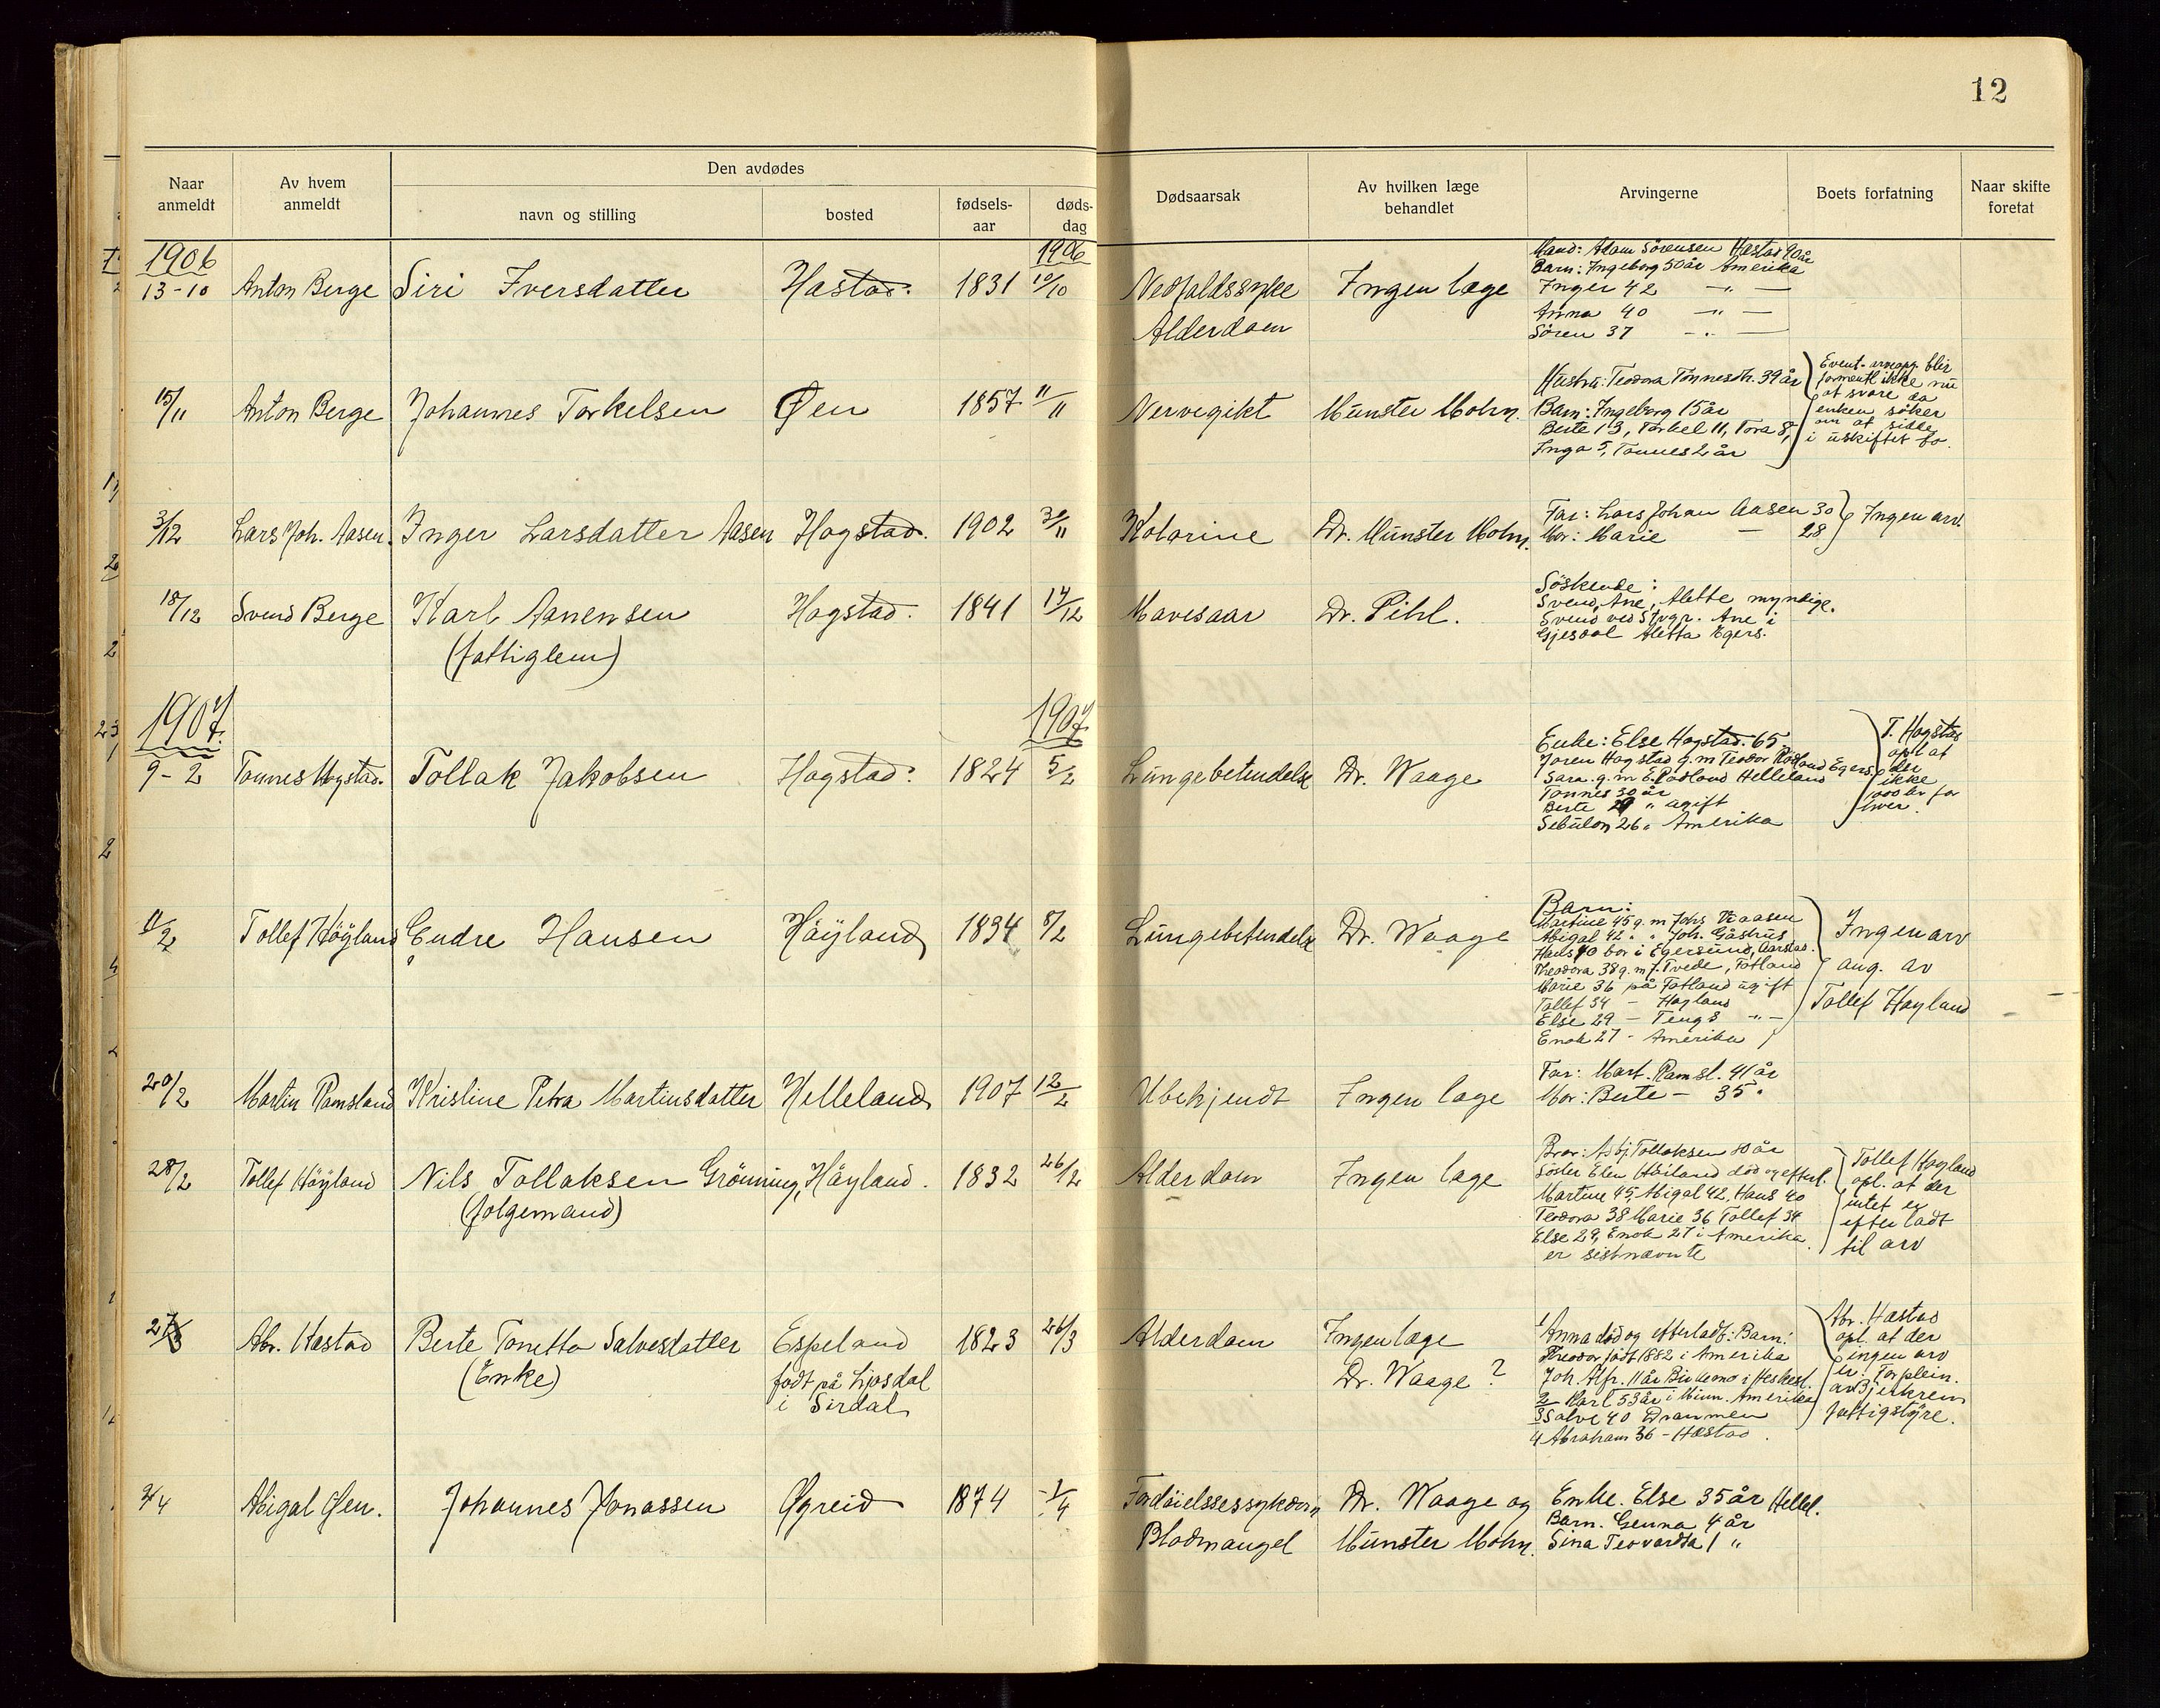 12
Den avdødes
Naar anmeldt
Av hvem anmeldt
navn og stilling
bosted
fødsels-aar
døds-dag
Dødsaarsak
Av hvilken læge behandlet
Arvingerne
Boets forfatning
Naar skifte foretat
1906
1906
13-10 Anton Berge Siri Iversdatter Hæstad. 1831 10/10 Nedfaldssyke Ingen læge
Alderdom
Mand: Adam Sörensen Hæstad 90 år
Barn: Ingeborg 50 år Amerika
Inger 42 -"-
Anna 40 -"-
Sören 37 -"-
15/11 Anton Berge Johannes Torkelsen Øen 1857 11/11 Nervegikt Münster Mohn.
Hustru: Teodora Tönnesdtr. 39 år
Barn: Ingeborg 15 år
Berte 13, Torkel 11, Tora 8,
Inga 5, Tönnes 2 år
formentl ikke nu
at svare da
enken söker
om at sidde
i uskiftet bo.
3/12 Lars Joh. Aasen. Inger Larsdatter Aasen Hogstad. 1902 30/11 Dr. Münster Mohn.
Far: Lars Johan Aasen 30
Mor: Marie — 28
Ingen arv.
18/12 Svend Berge Karl Aanensen Hogstad. 1841 14/12 Mavesaar Dr. Pihl.
(fattiglem)
Söskende:
Svend, Ane, Alette myndige.
Svend ved Stvgr. Ane i
Gjesdal Aletta Egers.
1907.
1907.
9-2 Tönnes Hogstad. Tollak Jakobsen Hogstad. 1824 5/2 Lungebetendelse Dr. Waage
Enke: Else Hogstad. 65
Joren Hogstad g.m Teodor Rödland Egers.
Sara. g.m E. Rodland Helleland
Tönnes 30 år
Berte 29 " ugift
Sebulon 26 " Amerika
T. Hogstad
opl at
der
ikke
1000 kr for
hver.
11/2 Tollef Höyland Endre Hansen Höyland 1834 8/2 Lungebetendelse Dr. Waage
Barn:
Martine 45 g. m Johs Vaasen
Abigal 42 " " Joh. Gåshus
Hans 40 bor i Egersund, Aarstad.
Theodora 38 g. m J. Tvede, Fotland
Marie 36 på Fotland ugift
Tollef 34 - Høyland
Else 29 - Tengs -"-
Enok 27 - Amerika
Ingen arv
ang. av
Tollef Høyland
20/2 Martin Ramsland Kristine Petra Martinsdatter Helleland 1907 12/2 Ubekjendt Ingen læge
Far: Mart. Ramsl. 41 år
Mor: Berte - 35 "
28/2 Tollef Höyland Nils Tollaksen Grönning, Höyland. 1832 26/2 Alderdom Ingen læge
(folgemand)
Bror: Asbj. Tollaksen 80 år
Söster Elen Höiland död og efterl.
Martine 45, Abigal 42, Hans 40
Teodora 38 Marie 36 Tollef 34
Else 29, Enok 27 i Amerika
er sistnævnte
Tollef Høyland
opl. at der
intet er
efterladt
til arv
27/3 Abr. Hæstad Berte Tonetta Salvesdatter Espeland 1823 26/3 Alderdom Ingen læge
(Enke) født på Ljosdal Dr. Waage?
i Sirdal
1 Anna död og efterladt: Barn:
Theodor født 1882 i Amerika
Joh. Alfr. 11 år Birkemo i Heskest.
2 Karl 53 år i Minn. Amerika
3 Salve 40 Drammen
4 Abraham 36 - Hæstad.
Abr. Hæstad
opl. at der
ingen arv
er. Forplein.
av Bjerkrem
fattigstyre.
2/4 Abigal Øen. Johannes Jonassen Øgreid 1874 1/4 Fordøielsessykdom Dr. Waage og
Blodmangel Münster Mohn.
Enke. Else 35 år Hellel.
Barn. Genna 4 år
Sina Teovardta 1 "